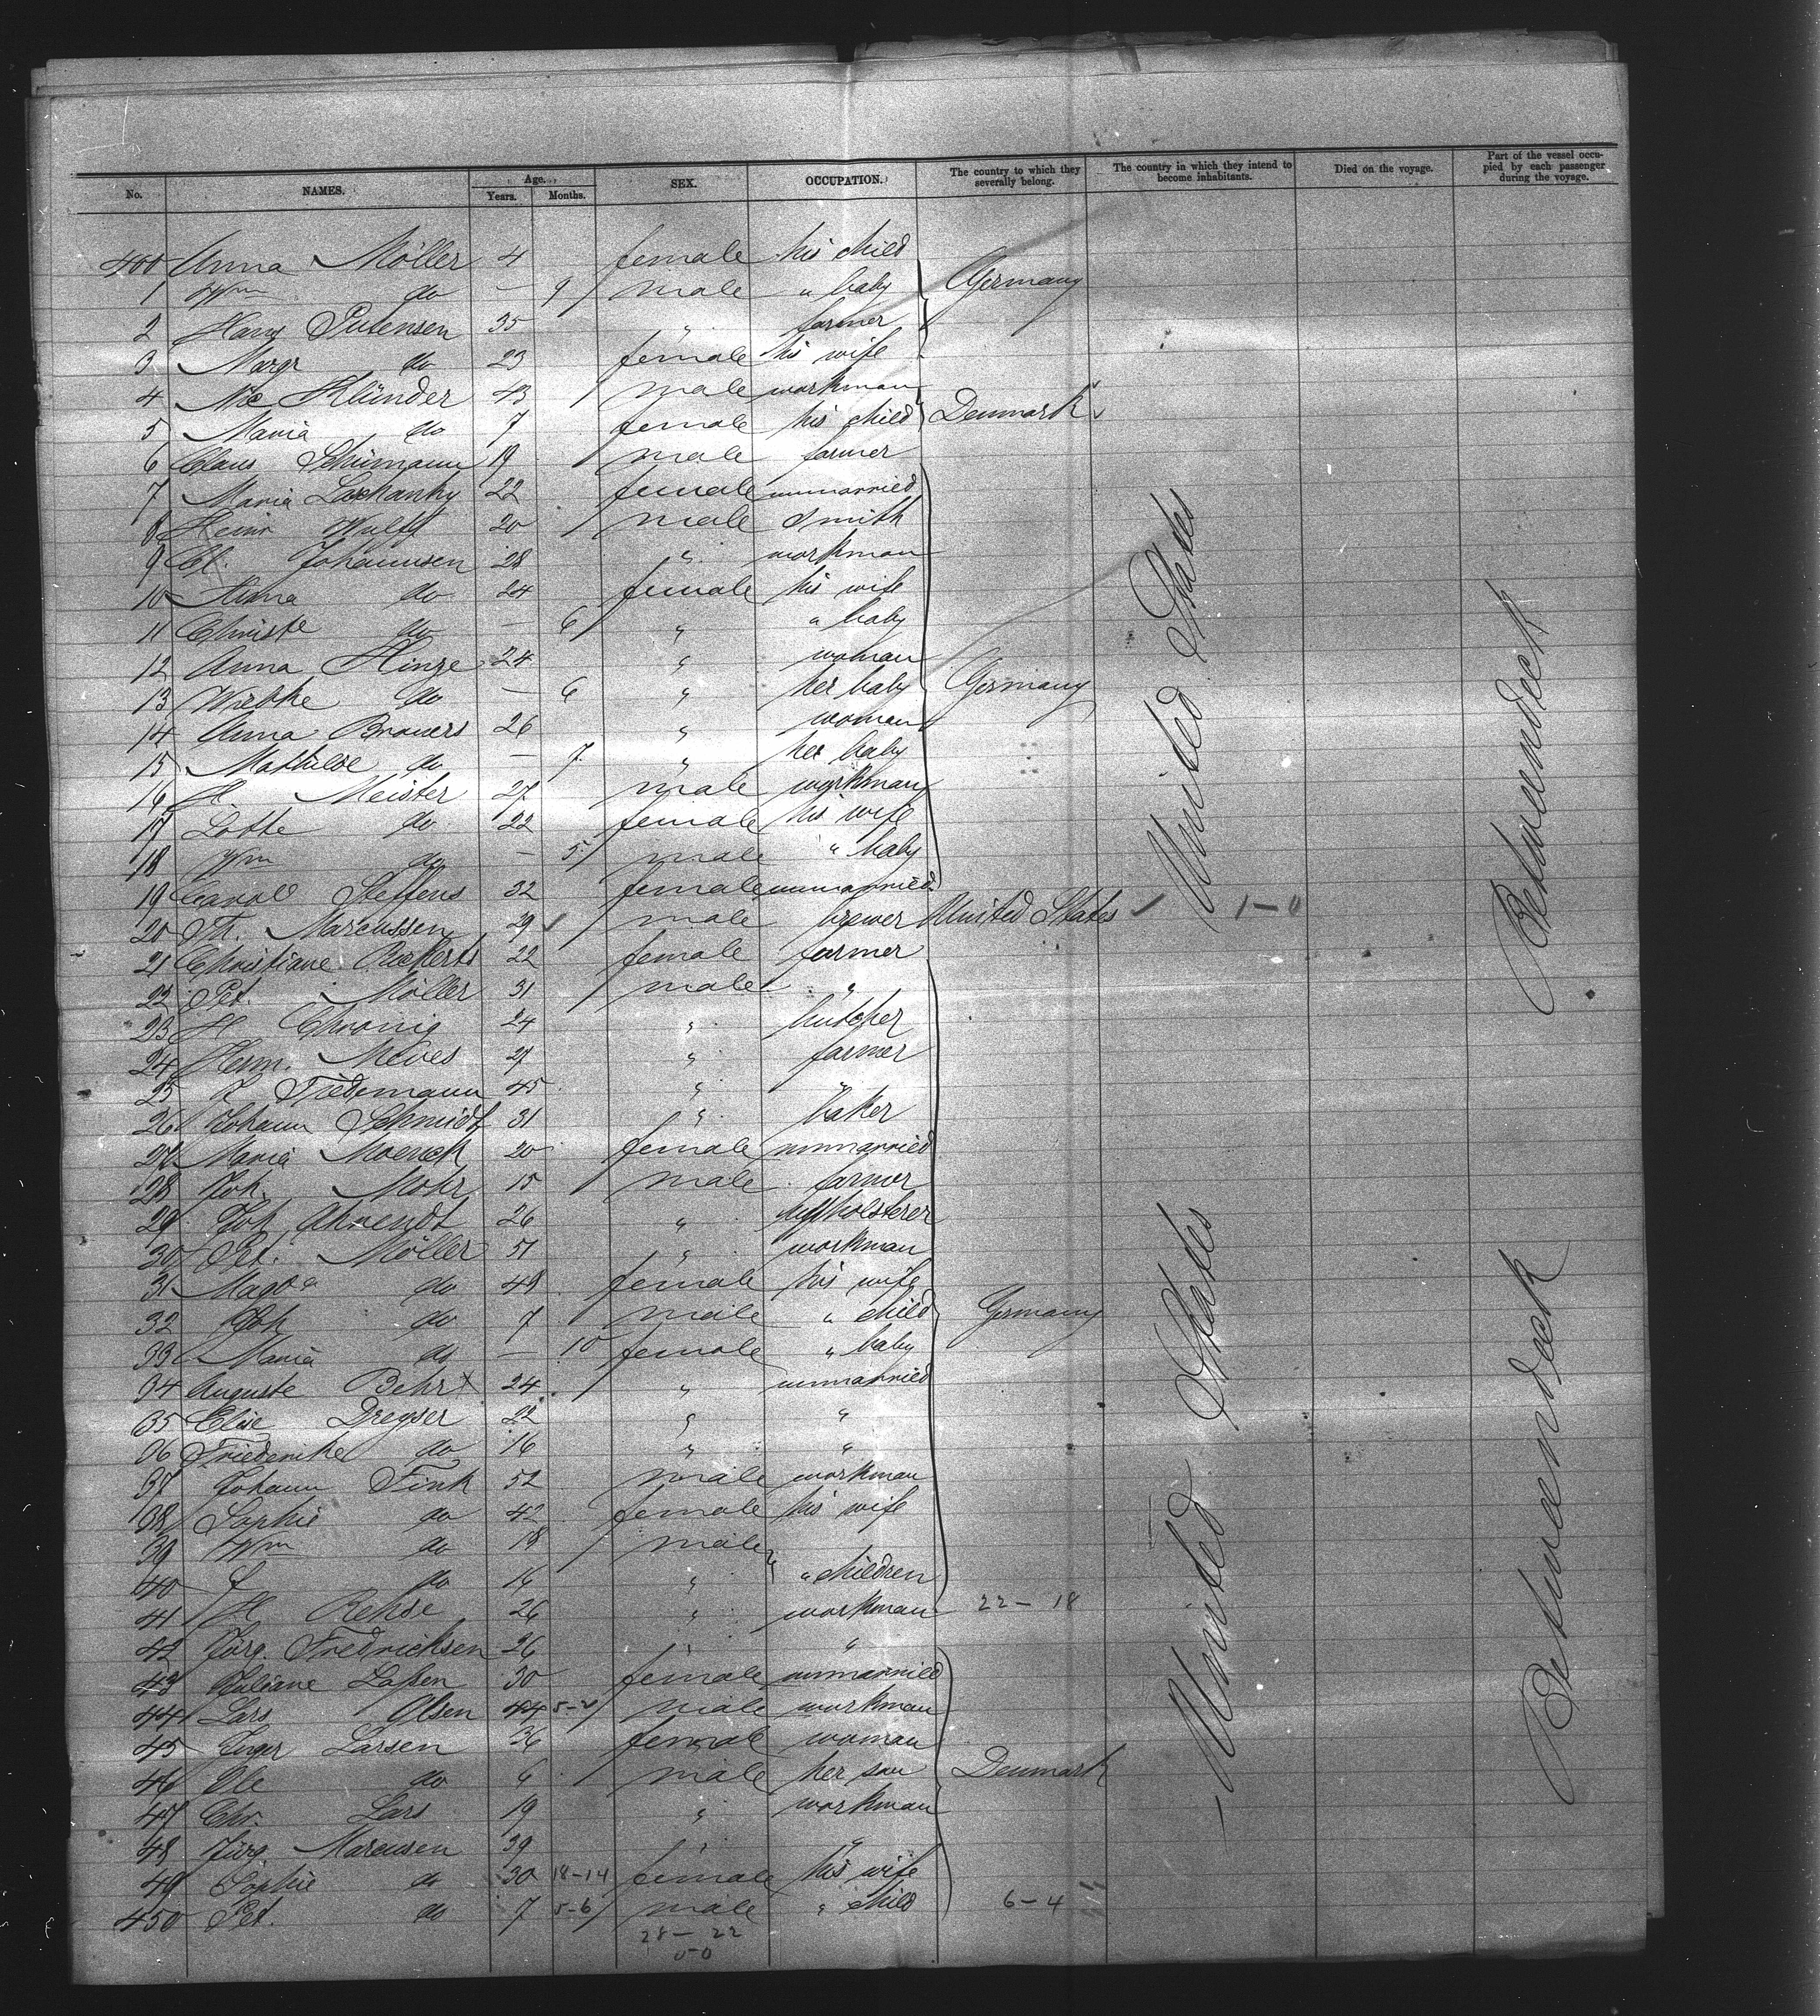 No. NAMES. Age. Years. Months. SEX. OCCUPATION. The country to which they severally belong. The country in which they intend to become inhabitants. Died on the voyage. Part of the vessel occupied by each passenger during the voyage.
400 Anna Möller 4 female his child
1 Wm do — 9 male " baby Germany
2 Hans Putensen 35 " farmer
3 Margr do 23 female his wife
4 Nic Klünder 43 male workman
5 Maria do 7 female his child Denmark
6 Claus Schümann 19 male farmer
7 Maria 22 female unmarried
8 Heinr Wulff 20 male Smith
9 Cl. Johannsen 28 " workman
10 Anna do 24 female his wife
11 Christe do — 6 " " baby
12 Anna Hinze 24 " woman
13 Wiebke do — 6 " her baby Germany
14 Anna Brauers 26 " woman
15 Mathilde do — 7 " her baby
16 H Meister 27 male workman
17 Lotte do 22 female his wife
18 Wm do — 5 male " baby
19 Carol Steffens 32 female unmarried
20 Th. Marcussen 29 male brewer United States 1-0
21 Christiane Rickerts 22 female farmer
22 Pet. Möller 31 male "
23 H Chronig 24 " butcher
24 Herm. Mewes 27 " farmer
25 J Friedemann 45 " "
26 Johann Schmidt 31 " baker
27 Maria Moenck 20 female unmarried
28 Joh. Mohr 15 male farmer
29 Joh Ahrendt 26 " upholsterer
30 Pet. Möller 51 " workman
31 Magda do 48 female his wife
32 Joh do 7 male " child Germany
33 Maria do — 10 female " baby
34 Auguste Behr 24 " unmarried
35 Elise Dreyser 22 " "
36 Friederike do 16 " "
37 Johann Fink 52 male workman
38 Sophie do 42 female his wife
39 Wm do 18 male
40 J do 14 " " children
41 H Rehse 26 " workman 22-18
42 Jörg. Fredricksen 26 "
43 Juliane Lassen 30 female unmarried
44 Lars Olsen 44 5-2 male workman
45 Inger Larsen 36 female woman
46 Ole do 6 male her son Denmark
47 Chr. Lars 19 " workman
48 Jürg Marcusen 39 " "
49 Sophie do 30 18-14 female his wife
450 Pet. do 7 5-6 male " child 6-4
28-22
0-0
United States
United States
Betweendeck
Betweendeck